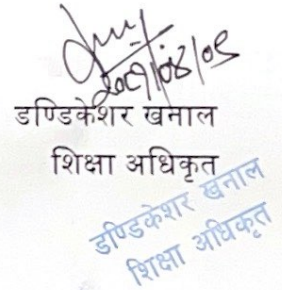 २०८१/०४/०९
डण्डिकेशर खनाल
शिक्षा अधिकृत
डण्डिकेशर खनाल
शिक्षा अधिकृत